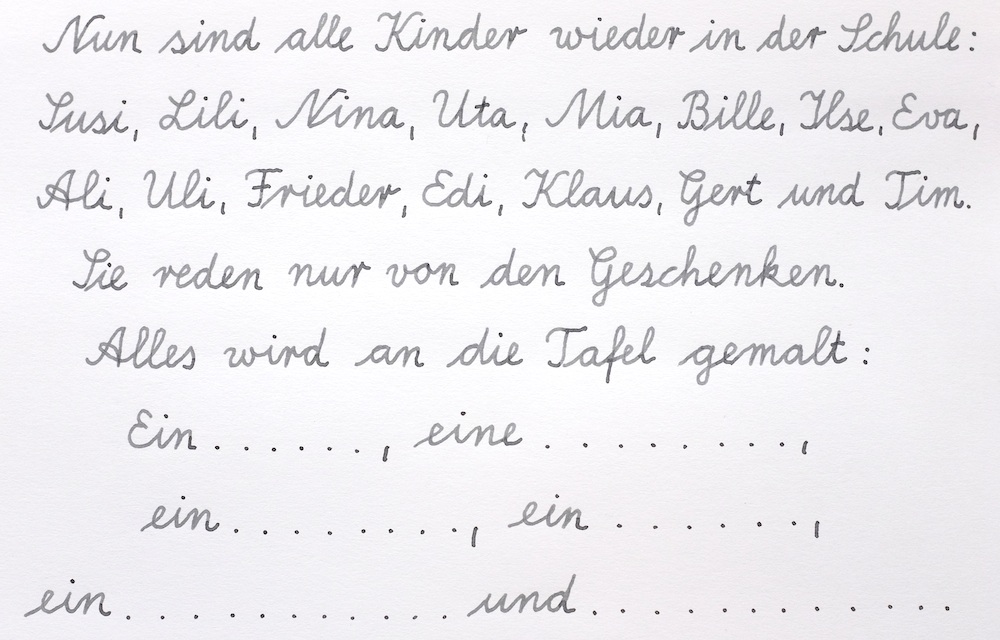 Nun sind alle Kinder wieder in der Schule:
Susi, Lili, Nina, Uta, Mia, Bille, Ilse, Eva,
Ali, Uli, Frieder, Edi, Klaus, Gert und Tim.
Sie reden nur von den Geschenken.
Alles wird an die Tafel gemalt:
Ein . . . . . . , eine . . . . . . . . . ,
ein . . . . . . . . , ein . . . . . . ,
ein . . . . . . . . . . . . . und . . . . . . . . . . . . .